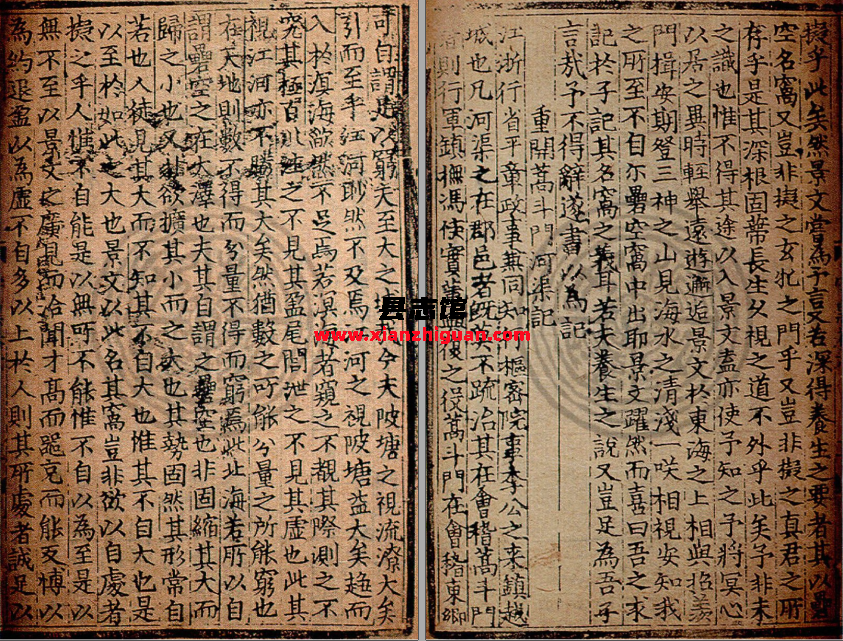 可自謂足以窮夫至大之域哉今夫陂塘之視流潦大矣
引而至乎江河眇然不及焉江河之視陂塘益大矣趨而
入於溟海歙然不足焉若溟海者窺之不覩其際測之不
究其極百川注之不見其盈尾閭泄之不見其虛也此其
視江河亦不勝其大矣然猶數之所能分量之所能窮也
在天地則數不得而分量不得而窮焉此北海若所以自
謂壘空之在大澤也夫其自謂之壘空也非固縮其大而
歸之小也又非欲擴其小而之大也其勢固然其形常自
若也人徒見其大而不知其不自大也惟其不自大也是
以至於如此之大也景文以此名其窩豈非欲以自處者
擬之乎人惟不自能是以無所不能惟不自以為至是以
無不至以景文之廣見而洽聞才高而器充而能反博以
為約退盈以為虛不自多以上於人則其所處者誠足以
擬乎此矣然景文嘗為予言又若深得養生之要者其以壘
空名窩又豈非擬之玄牝之門乎又豈非擬之真君之所
存乎是其深根固蔕長生久視之道不外乎此矣予非未
之識也惟不得其途以入景文盍亦使予知之予將冥心
以居之異時輕舉遠遊邂逅景文於東海之上相與挹羨
門揖安期登三神之山見海水之清淺一咲相視安知我
之所至不自尔壘空窩中出耶景文躍然而喜曰吾之求
記於子記其名窩之義耳若夫養生之說又豈足為吾子
言哉予不得辭遂書以為記
重開蒿斗門河渠記
江浙行省平章政事兼同知行樞密院事李公之來鎮越
城也凡河渠之在郡邑者既莫不疏治其在會稽蒿斗門
者則行軍鎮撫馮侯實董後之從蒿斗門在會稽東鄉
县志馆
www.xianzhiguan.com